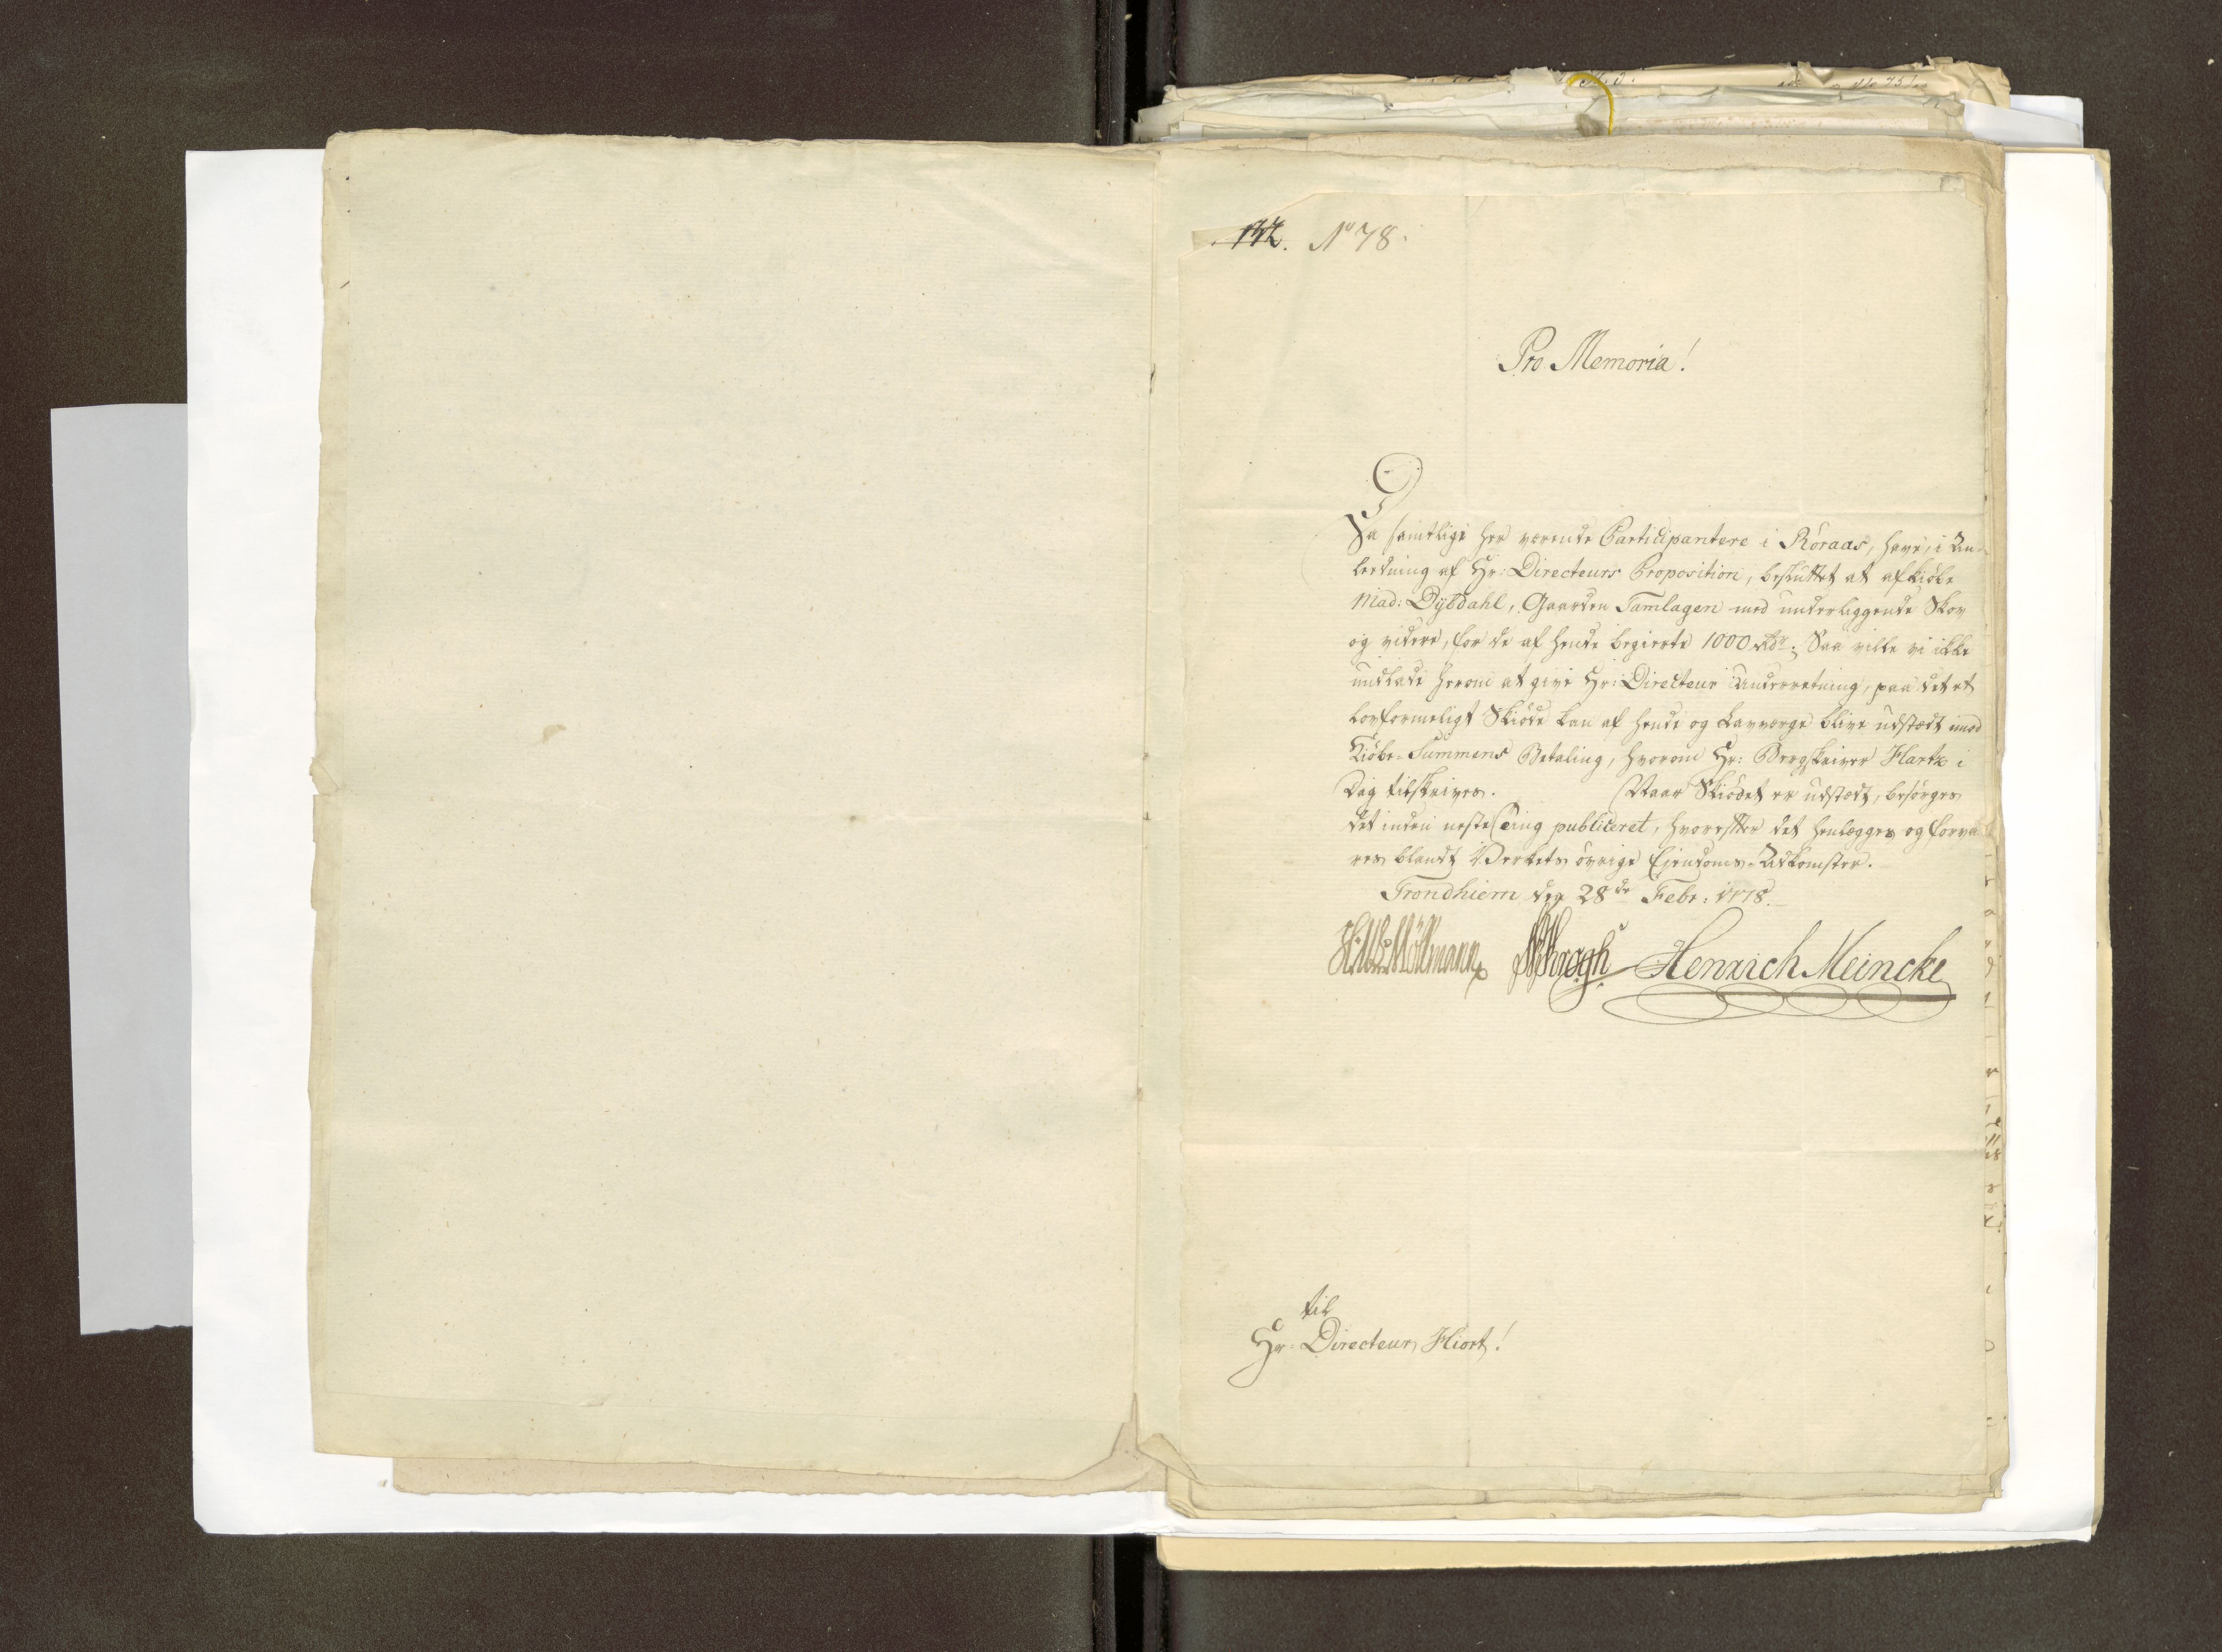 No 78.
Pro Memoria!
Da samtlige her værende Participantere i Röraas, have, i An-
ledning af Hr: Directeurs Proposition, besluttet at afkiöbe
Mad: Dÿbdahl, Gaarden Tamlagen med underliggende Skov
og videre, for de af hende begierte 1000 Rdr; Saa ville vi ikke
undlade herom at give Hr: Directeur Underretning, paa det et
lovformeligt Skiöde kan af hende og Lavværge blive udstædt imod
Kiöbe-Summens Betaling, hvorom Hr: Bergskriver Hartz i
Dag tilskrives. Naar Skiödet er udstædt, besörges
det inden neste Ting publiceret, hvorefter det henlægges og forva
res blandt Verkets övrige Ejendoms-Adkomster.
Trondhiem den 28de Febr: 1778.
Möllmann Krogh Henrich Meincke
til
Hr: Directeur Hiort!